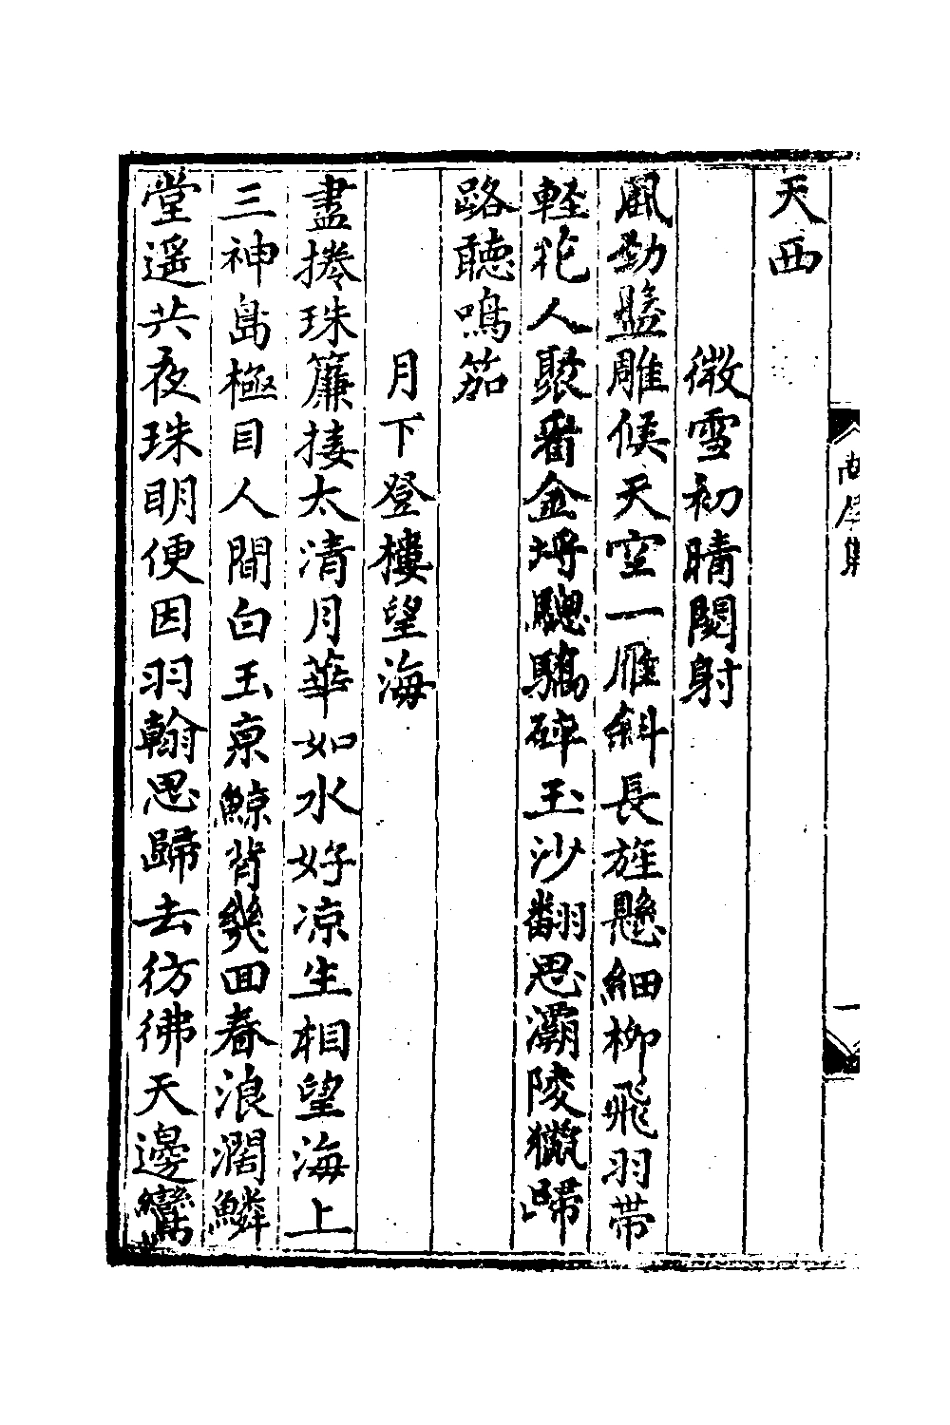 天西
微雪初晴閱射
風勁盤雕候天空一雁斜長旌懸細柳飛羽帶
輕花人聚番金埒驄驕碎玉沙翻思灞陵獵歸
路聽鳴笳
月下登樓望海
盡捲珠簾接太清月華如水好凉生相望海上
三神島極目人間白玉京鯨背幾回春浪濶鱗
堂遥共夜珠明便因羽翰思歸去彷彿天邊鸞
集
一